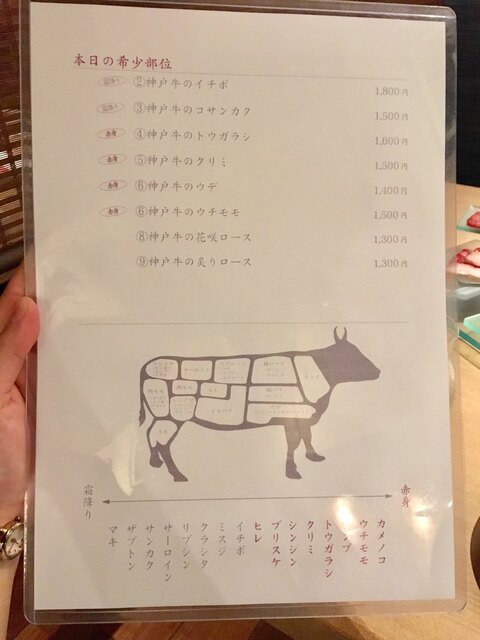 本日の希少部位
霜降り ②神戸牛のイチボ 1,800円
霜降り ③神戸牛のコサンカク 1,500円
赤身 ④神戸牛のトウガラシ 1,600円
赤身 ⑤神戸牛のクリミ 1,500円
赤身 ⑥神戸牛のウデ 1,400円
赤身 ⑥神戸牛のウチモモ 1,500円
⑧神戸牛の花咲ロース 1,300円
⑨神戸牛の炙りロース 1,300円
サーロイン
リブロース
肩ロース
ネック
ヒレ
肩バラ
トモバラ
霜降り
赤身
カメノコ
ウチモモ
トウガラシ
クリミ
シンシン
ブリスケ
ヒレ
イチボ
ミスジ
クラシタ
リブシン
サーロイン
サンカク
ザブトン
マキ